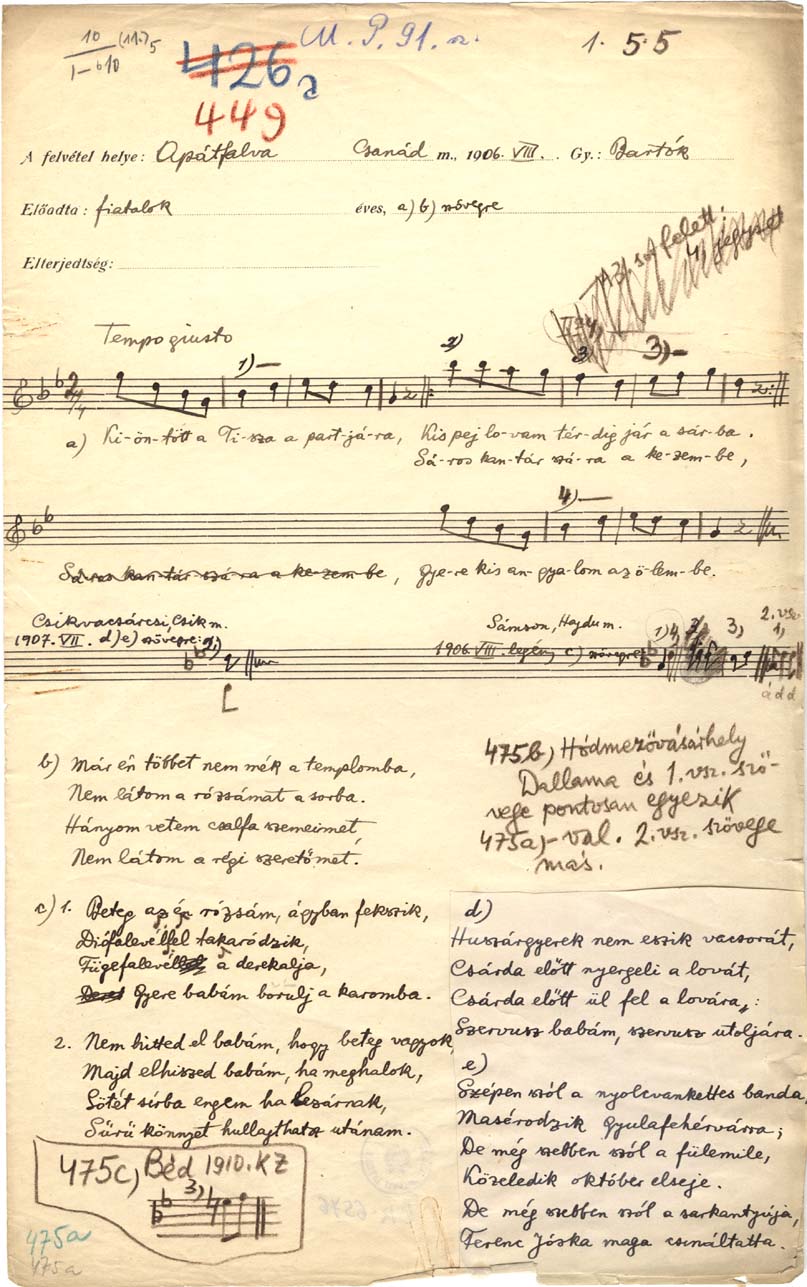 10 (11.)5
1-610
426a
M. P. 91. sz.
1. 5.5
449
A felvétel helye: Apátfalva Csanád m., 1906. VIII. Gy.: Bartók
Előadta: fiatalok éves, a) b) szövegre
Elterjedtség:
felett:
4, jegyzet
Tempo giusto
1) 2) 3 3)
2/4
a) Ki-ön-tött a Ti-sza a part-já-ra, Kis pej lo-vam tér-dig jár a sár-ba.
Sá-ros kan-tár szá-ra a ke-zem-be,
4)
Sá-ros kan-tár szá-ra a ke-zem-be, gye-re kis an-gya-lom az ö-lem-be.
Csikvacsárcsi, Csik m.
1907. VII. d) e) szövegre: 2,)
Sámson, Hajdu m.
1906. VIII. legény c) szövegre
1) 4, 3) 2. vsz.
1,
á d d
b) Már én többet nem mék a templomba,
Nem látom a rózsámat a sorba.
Hányom vetem csalfa szemeimet,
Nem látom a régi szeretőmet.
475b) Hódmezővásárhely
Dallama és 1. vsz. szö-
vege pontosan egyezik
475a)-val. 2. vsz. szövege
más.
c) 1. Beteg az én rózsám, ágyban fekszik,
Diófalevéllel takaródzik,
Fügefalevél a derekalja,
Gyere babám borulj a karomba.
2. Nem hitted el babám, hogy beteg vagyok,
Majd elhiszed babám, ha meghalok,
Sötét sírba engem ha bezárnak,
Sűrű könnyet hullajthatsz utánam.
d)
Huszárgyerek nem eszik vacsorát,
Csárda előtt nyergeli a lovát,
Csárda előtt ül fel a lovára,:
Szervusz babám, szervusz utoljára.
e)
Szépen szól a nyolcvankettes banda,
Masérodzik Gyulafehérvárra;
De még szebben szól a fülemile,
Közeledik október elseje.
De még szebben szól a sarkantyúja,
Ferenc Jóska maga csináltatta.
475c) Béd 1910. KZ
3) 4
475a
475a